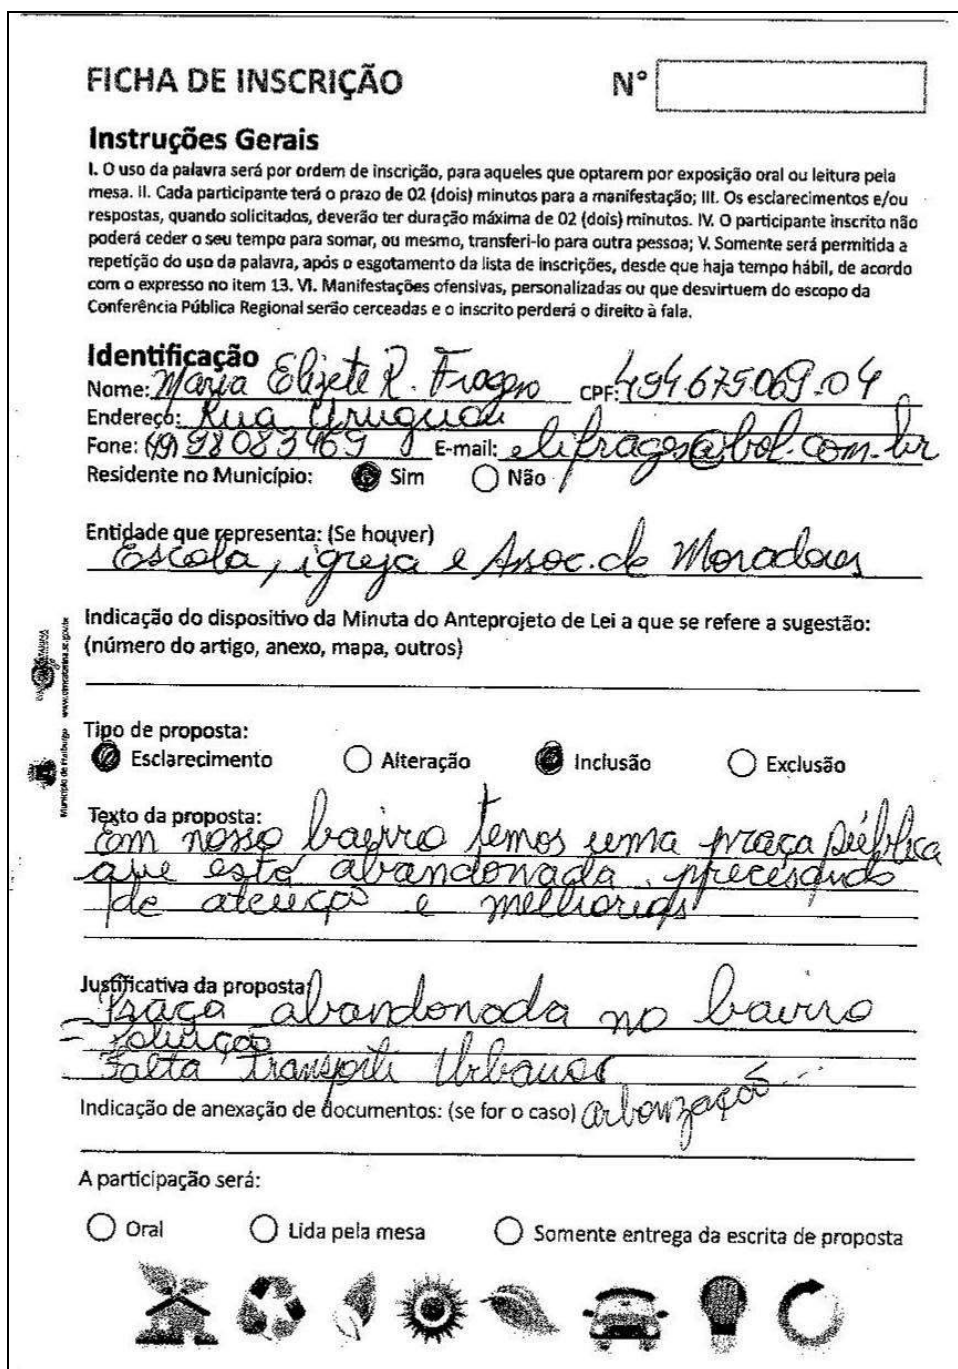 FICHA DE INSCRIÇÃO Nº
Instruções Gerais
I. O uso da palavra será por ordem de inscrição, para aqueles que optarem por exposição oral ou leitura pela
mesa. II. Cada participante terá o prazo de 02 (dois) minutos para a manifestação; III. Os esclarecimentos e/ou
respostas, quando solicitados, deverão ter duração máxima de 02 (dois) minutos. IV. O participante inscrito não
poderá ceder o seu tempo para somar, ou mesmo, transferi-lo para outra pessoa; V. Somente será permitida a
repetição do uso da palavra, após o esgotamento da lista de inscrições, desde que haja tempo hábil, de acordo
com o expresso no item 13. VI. Manifestações ofensivas, personalizadas ou que desvirtuem do escopo da
Conferência Pública Regional serão cerceadas e o inscrito perderá o direito à fala.
Identificação
Nome: Maria Elizete R. Fragoso CPF: 494675069-04
Endereço: Rua Uruguai
Fone: (49) 98083969 E-mail: elifragos@bol.com.br
Residente no Município: Sim Não
Entidade que representa: (Se houver)
Escola, igreja e Assoc. de Moradores
Indicação do dispositivo da Minuta do Anteprojeto de Lei a que se refere a sugestão:
(número do artigo, anexo, mapa, outros)
Município de Fraiburgo
Tipo de proposta:
Esclarecimento Alteração Inclusão Exclusão
Texto da proposta:
Em nosso bairro temos uma praça pública
que está abandonada, precisando
de atenção e melhorias
Justificativa da proposta
Praça abandonada no bairro
- Poluição
- Falta Transporte Urbanos
Indicação de anexação de documentos: (se for o caso) Arborização
A participação será:
Oral Lida pela mesa Somente entrega da escrita de proposta